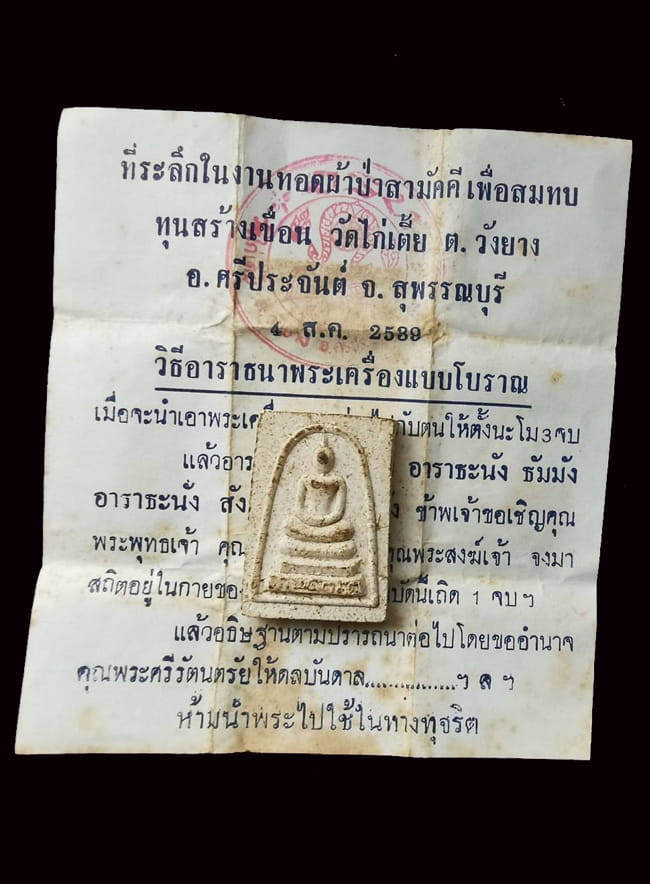 ที่ระลึกในงานทอดผ้าป่าสามัคคี เพื่อสมทบ
ทุนสร้างเขื่อน วัดไก่เตี้ย ต. วังยาง
อ. ศรีประจันต์ จ. สุพรรณบุรี
4 ส.ค. 2539
วิธีอาราธนาพระเครื่องแบบโบราณ
เมื่อจะนำเอาพระเครื่ กับตนให้ตั้งนะโม3จบ
แล้วอาร อาราธะนัง ธัมมัง
อาราธะนัง สัง ข้าพเจ้าขอเชิญคุณ
พระพุทธเจ้า คุณ คุณพระสงฆ์เจ้า จงมา
สถิตอยู่ในกายของ บัดนี้เถิด 1 จบฯ
แล้วอธิษฐานตามปรารถนาต่อไปโดยขออำนาจ
คุณพระศรีรัตนตรัยให้ดลบันดาล................ฯ ล ฯ
ห้ามนำพระไปใช้ในทางทุจริต